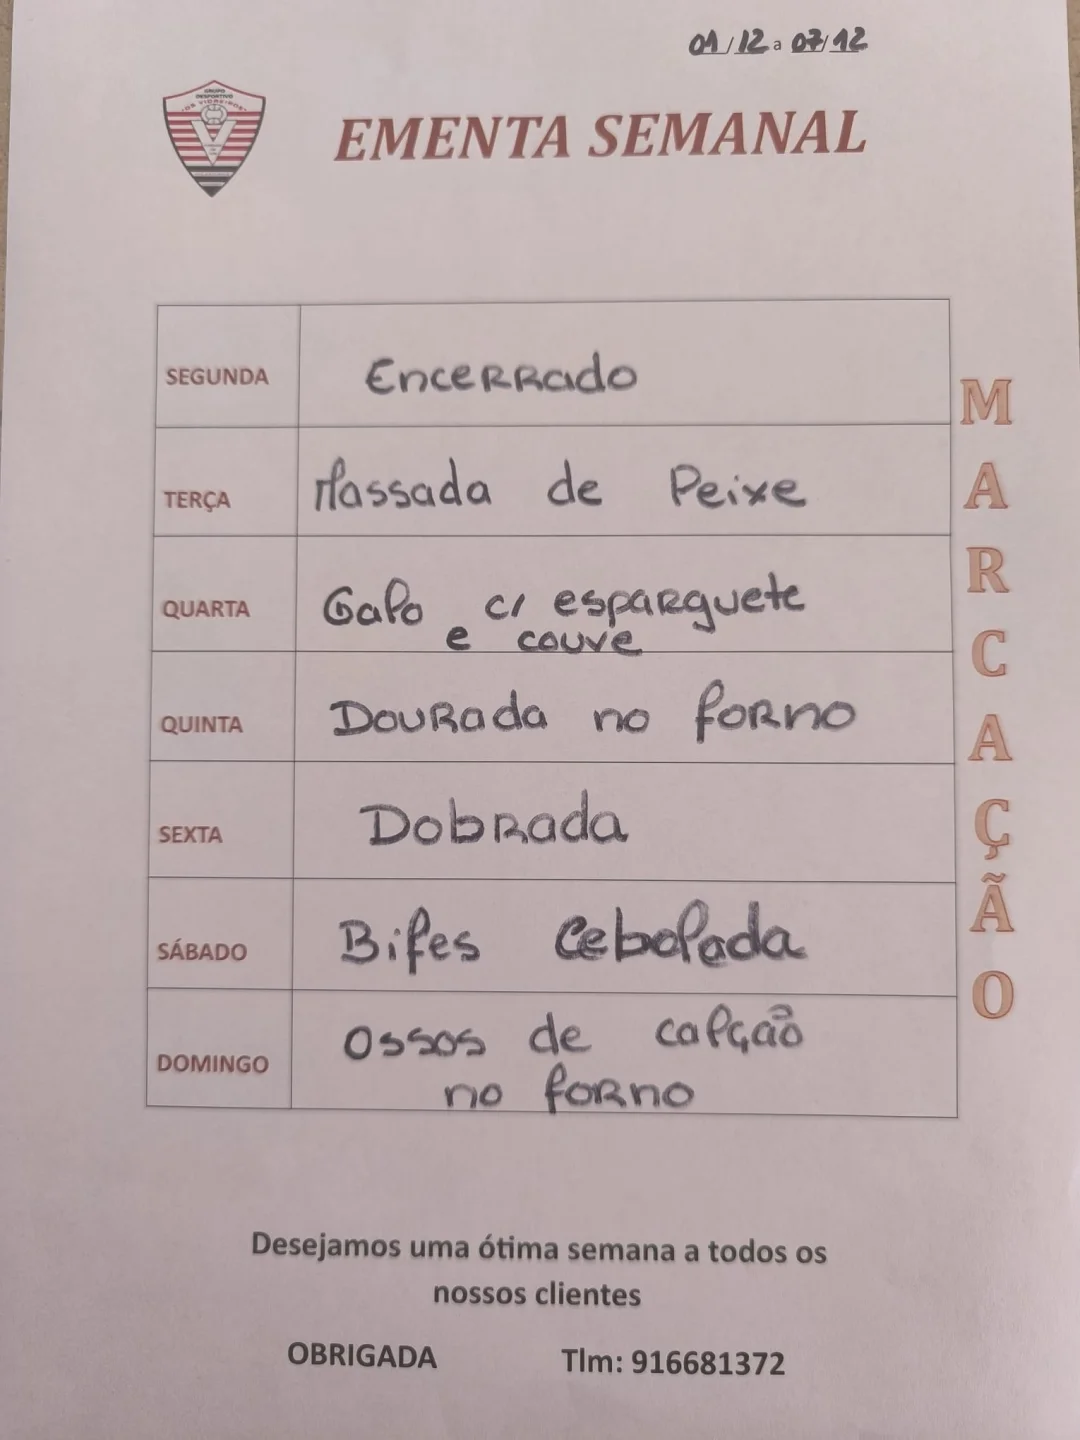 01/12 a 07/12
GRUPO
DESPORTIVO
"OS VIDREIROS"
EMENTA SEMANAL
SEGUNDA Encerrado
TERÇA Massada de Peixe
QUARTA Galo c/ esparguete
e couve
QUINTA Dourada no forno
SEXTA Dobrada
SÁBADO Bifes Cebolada
DOMINGO Ossos de calção
no forno
MARCAÇÃO
Desejamos uma ótima semana a todos os
nossos clientes
OBRIGADA Tlm: 916681372